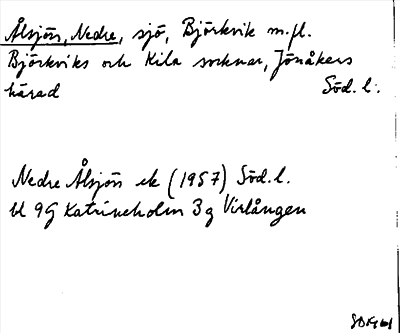 Ålsjön, Nedre, sjö, Björkvik m.fl.
Björkviks och Kila socknar, Jönåkers
härad Söd. l.
Nedre Ålsjön ek (1957) Söd. l.
bl 9G Katrineholm 3g Virlången